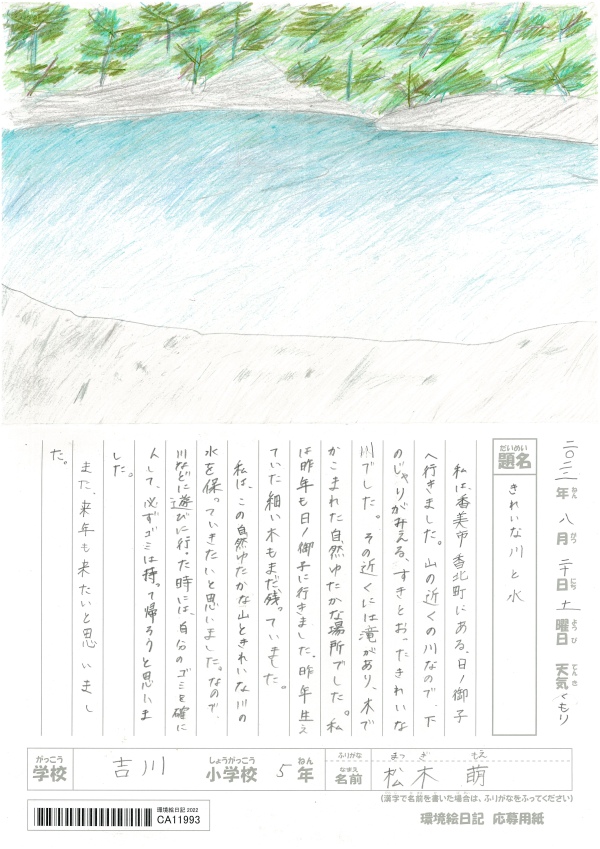 二〇二二年 八月 二十日 土曜日 天気 くもり
ねん がつ にち ようび てんき
だいめい
題名 きれいな川と水
私は、香美市香北町にある、日ノ御子
へ行きました。山の近くの川なので、下
のじゃりがみえる、すきとおったきれいな
川でした。その近くには滝があり、木で
かこまれた自然ゆたかな場所でした。私
は昨年も日ノ御子に行きました。昨年生え
ていた細い木もまだ残っていました。
私は、この自然ゆたかな山ときれいな川の
水を保っていきたいと思いました。なので、
川などに遊びに行った時には、自分のゴミを確に
んして、必ずゴミは持って帰ろうと思いま
した。
また、来年も来たいと思いまし
た。
がっこう しょうがっこう ねん
学校 吉川 小学校 5年
ふりがな まつ ぎ もえ
なまえ
名前 松木 萌
(漢字で名前を書いた場合は、ふりがなをふってください)
環境絵日記 2022
CA11993
環境絵日記 応募用紙